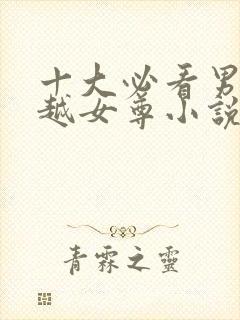 十大必看男
越女尊小說
青霖之靈